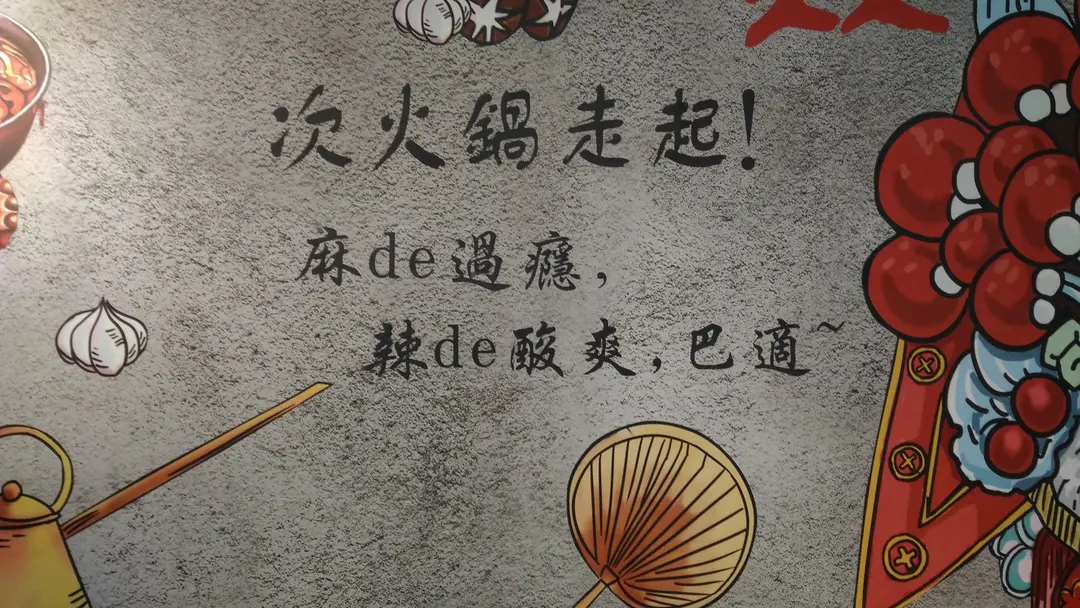 次火鍋走起!
麻de過癮,
辣de酸爽,巴適~